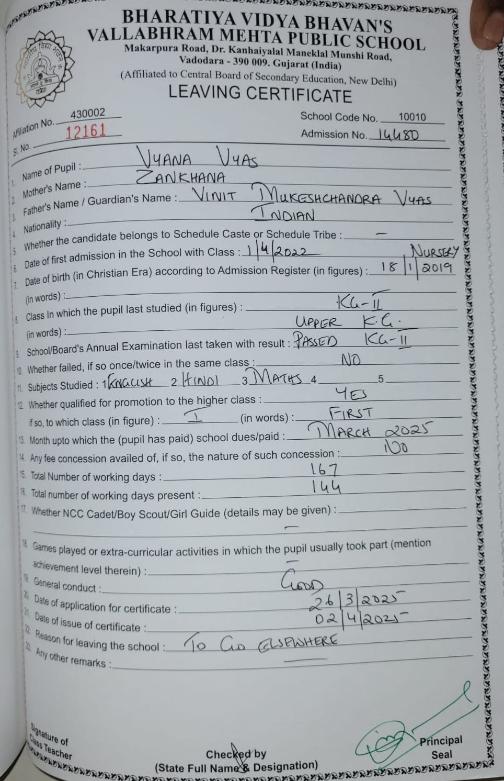 BHARATIYA VIDYA BHAVAN'S
VALLABHRAM MEHTA PUBLIC SCHOOL
Makarpura Road, Dr. Kanhaiyalal Maneklal Munshi Road,
Vadodara - 390 009. Gujarat (India)
(Affiliated to Central Board of Secondary Education, New Delhi)
LEAVING CERTIFICATE
Affiliation No. 430002 School Code No. 10010
S. No. 12161 Admission No. 14480
1. Name of Pupil : VYANA VYAS
2. Mother's Name : ZANKHANA
3. Father's Name / Guardian's Name : VINIT MUKESHCHANDRA VYAS
4. Nationality : INDIAN
5. Whether the candidate belongs to Schedule Caste or Schedule Tribe : –
6. Date of first admission in the School with Class : 1/4/2022 NURSERY
7. Date of birth (in Christian Era) according to Admission Register (in figures) : 18/1/2019
(in words) :
8. Class in which the pupil last studied (in figures) : KG-II
(in words) : UPPER K.G.
9. School/Board's Annual Examination last taken with result : PASSED KG-II
10. Whether failed, if so once/twice in the same class : NO
11. Subjects Studied : 1 ENGLISH 2 HINDI 3 MATHS 4 5
12. Whether qualified for promotion to the higher class : YES
if so, to which class (in figure) : I (in words) : FIRST
13. Month upto which the (pupil has paid) school dues/paid : MARCH 2025
14. Any fee concession availed of, if so, the nature of such concession : NO
15. Total Number of working days : 167
16. Total number of working days present : 144
17. Whether NCC Cadet/Boy Scout/Girl Guide (details may be given) :
–
18. Games played or extra-curricular activities in which the pupil usually took part (mention
achievement level therein) : –
19. General conduct : GOOD
20. Date of application for certificate : 26/3/2025
21. Date of issue of certificate : 02/4/2025
22. Reason for leaving the school : TO GO ELSEWHERE
23. Any other remarks :
Signature of
Class Teacher
Checked by
(State Full Name & Designation)
Principal
Seal